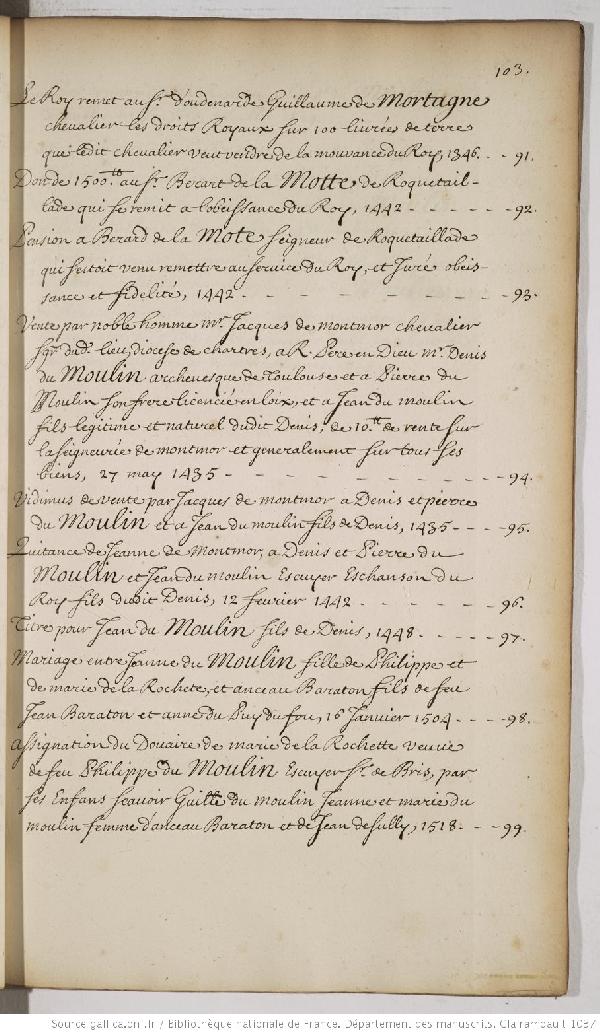 103.
Le Roy remet au Sr. d'oudenarde Guillaume de Mortagne
chevalier les droits Royaux sur 100 livrées de terre
que ledit chevalier veut vendre de la mouvance du Roy, 1346. - - 91.
Don de 1500 tt au Sr. Berart de la Motte de Roquetail-
lade qui se remit a l'obeissance du Roy, 1442 - - - - - - 92.
Pension a Berard de la Mote seigneur de Roquetaillade
qui s'estoit venu remettre au service du Roy, et Juré obeis-
sance et fidelité, 1442. - - - - - - - 93.
Vente par noble homme mre. Jacques de montmor chevalier
sgr. dud. lieu, diocese de chartres, a R. Pere en Dieu mre. Denis
du Moulin archevesque de Toulouse et a Pierre du
Moulin son frere licencié en loix, et a Jean du moulin
fils legitime et naturel dudit Denis, de 10 tt. de rente sur
la seigneurie de montmor et generalement sur tous ses
biens, 27 may 1435 - - - - - - - - 94.
Vidimus de vente par Jacques de montmor a Denis et pierre
du Moulin et a Jean du moulin fils de Denis, 1435 - - - - 95.
Quitance de Jeanne de Montmor, a Denis et Pierre du
Moulin et Jean du moulin Escuyer Eschanson du
Roy fils dudit Denis, 12 fevrier 1442 - - - - - - 96.
Titre pour Jean du Moulin fils de Denis, 1448 - - - - - 97.
Mariage entre Jeanne du Moulin fille de Philippe et
de marie de la Rochete, et anceau Baraton fils de feu
Jean Baraton et anne du Puy du fou, 16 Janvier 1504 - - - - 98.
assignation du Douaire de marie de la Rochette veuve
de feu Philippe du Moulin Escuyer Sr. de Bris, par
ses Enfans scavoir Guille du moulin Jeanne et marie du
moulin femme d'anceau Baraton et de Jean de sully, 1518. - - - 99.
Source gallica.bnf.fr / Bibliothèque nationale de France. Département des manuscrits. Clairambault 1087